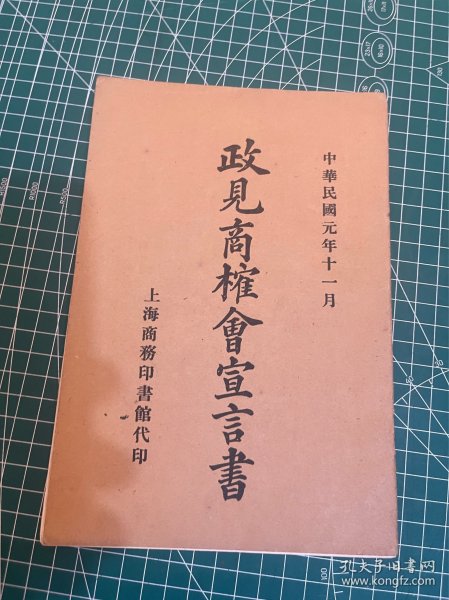 中華民國元年十一月
政見商榷會宣言書
上海商務印書館代印
孔夫子旧书网
www.kongfz.com